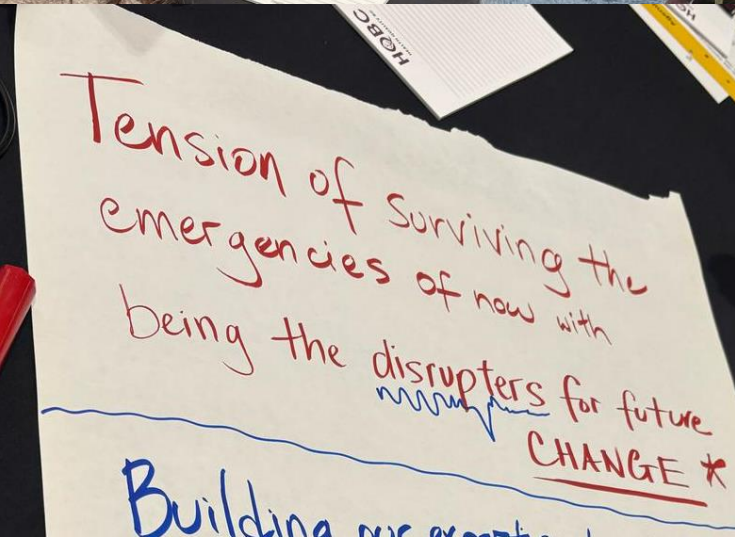 HQBC
Tension of surviving the
emergencies of now with
being the disrupters for future
CHANGE *
Building our